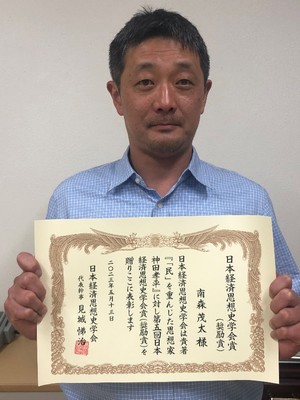 日本経済思想史学会賞
(奨励賞)
南森 茂太 様
日本経済思想史学会は貴著
『「民」を重んじた思想家
神田孝平』に対し第五回日本
経済思想史学会賞(奨励賞)を
贈りここに表彰します
二〇二三年五月十三日
日本経済思想史学会
代表幹事 見城 悌治